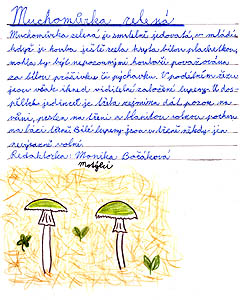 Muchomůrka zelená
Muchomůrka zelená je smrtelně jedovatá, v mládí,
když je houba ještě celá kryta bílou plachetkou,
mohla by být nepozorným houbaři považována
za bílou pýchavku. V podélním řezu
jsou však ihned viditelné založení lupeny. U dos-
pělých jedinců je třeba zejména dát pozor na
prsten na třeni a blanitou pochvu
na bázi třeně. Bílé lupeny jsou u třeně někdy jen
nevýrazně volné.
Redaktorka: Monika Bočáková
Motýlci